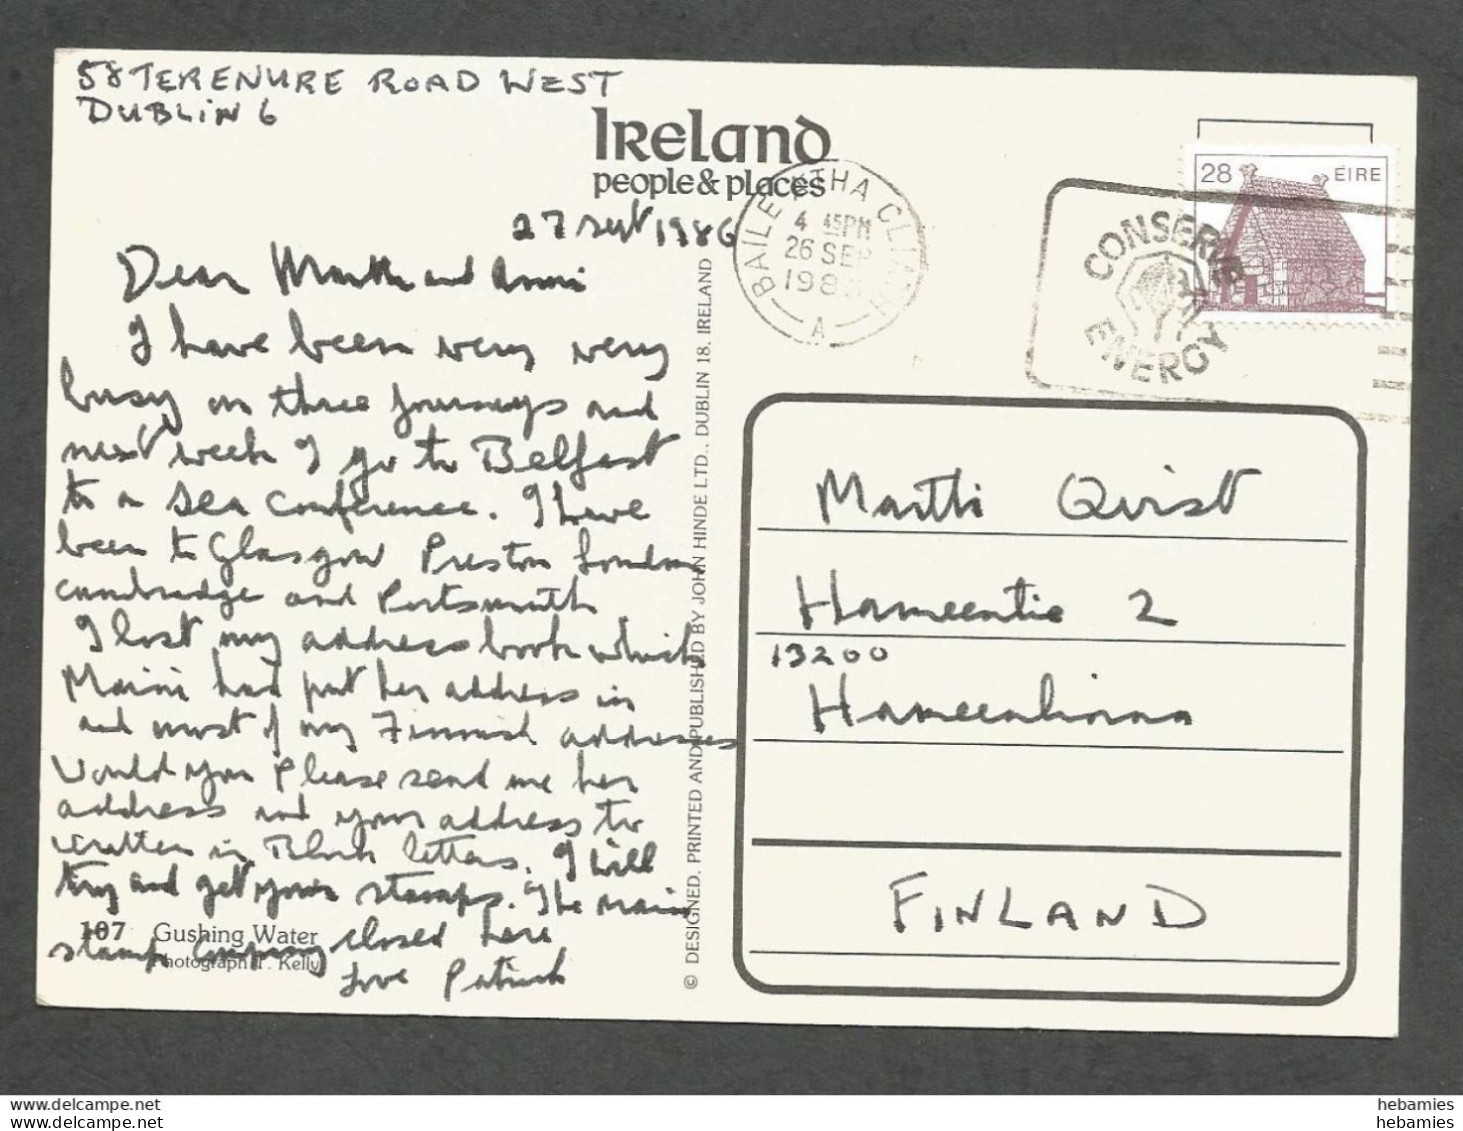 58 TERENURE ROAD WEST
DUBLIN 6
IRELAND
people & places
27 sept 1986
BAILE ÁTHA CLIATH
4 45PM
26 SEP
198
A
28 ÉIRE
CONSERVE
ENERGY
Dear Martti and Anni
I have been very very
busy on three journeys and
next week I go to Belfast
to a sea conference. I have
been to Glasgow Preston London
Cambridge and Portsmouth
I lost my address book which
Maini had put her address in
and most of my Finnish addresses
Would you Please send me her
address and your address to
written in Block letters. I will
try and get your stamps. The main
stamp Company closed here
Love Patrick
107 Gushing Water
Photograph: P. Kelly
© DESIGNED, PRINTED AND PUBLISHED BY JOHN HINDE LTD., DUBLIN 18, IRELAND
Martti Qvist
Hameentie 2
13200
Hameenlinna
FINLAND
hebamies
hebamies
delcampe.net
delcampe.net